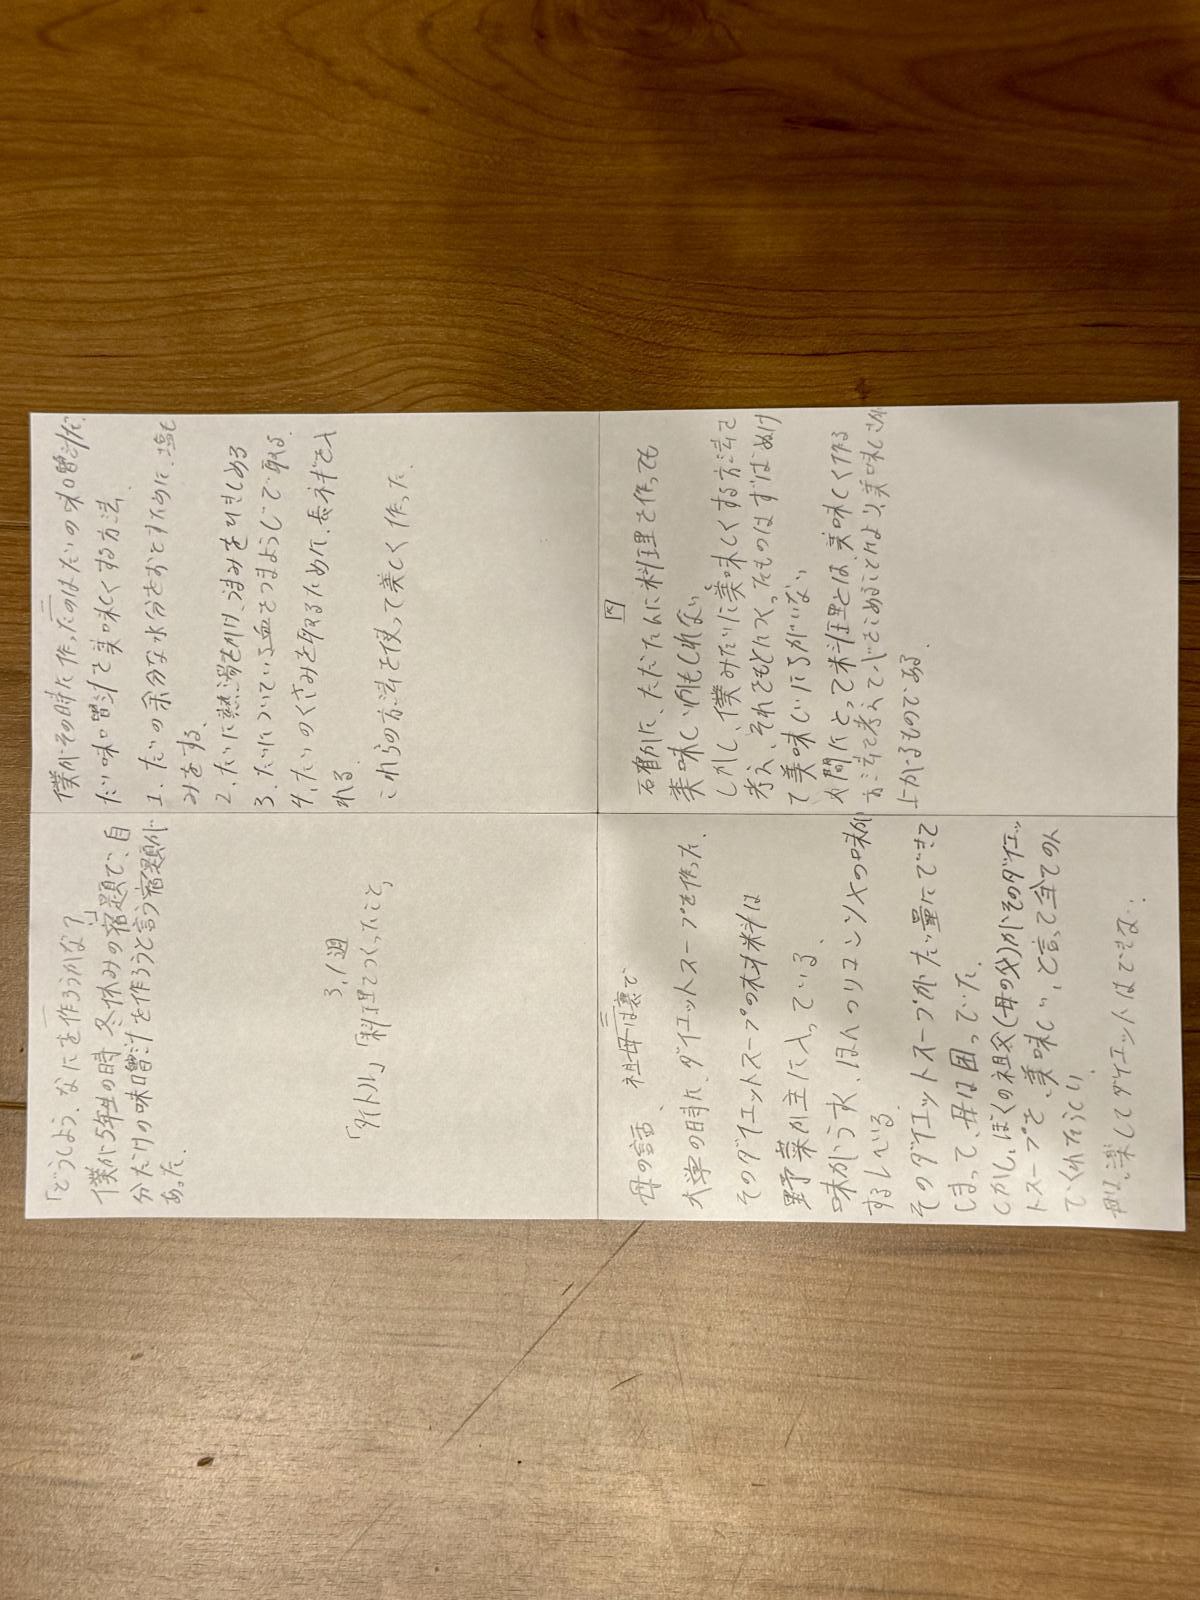 「どうしよう、なにを作ろうかな?」
僕が5年生の時 冬休みの宿題で、自
分だけの味噌汁を作ろうと言う宿題が
あった。
3,1週
「タイトル」「料理でつくったこと」
二
僕がその時に作ったのはたいの味噌汁だ。
たい味噌汁で美味くする方法
1. たいの余分な水分をおとすために、塩も
みをする。
2. たいに熱湯をかけ、うまみをとじこめる
3. たいについている血をつまようじで取る。
4. たいのくさみを取るために、長ネギを入
れる。
これらの方法を使って美しく作った。
三
母の話、祖母は裏で
大学の時に、ダイエットスープを作った。
そのダイエットスープの材料は
野菜が主に入っている、
味がうす、ほんのりコンソメの味が
するしべる。
そのダイエットスープがたい量にできて
しまって、母は困っていた。
しかし、ぼくの祖父(母の父)がそのダイエッ
トスープを、美味しい、と言って全てのん
でくれたらしい
母は、楽してダイエットはできない。
四
石翟かに、ただたんに料理を作っても
美味しいかもしれない
しかし、僕みたいに美味しくする方法を
考え、それをもとにつくったものはずばぬけ
て美味しいにちがいない
人間にとって料理とは、美味しく作る
方法を考えていどこめることにより、美味しさが
上がるものである。